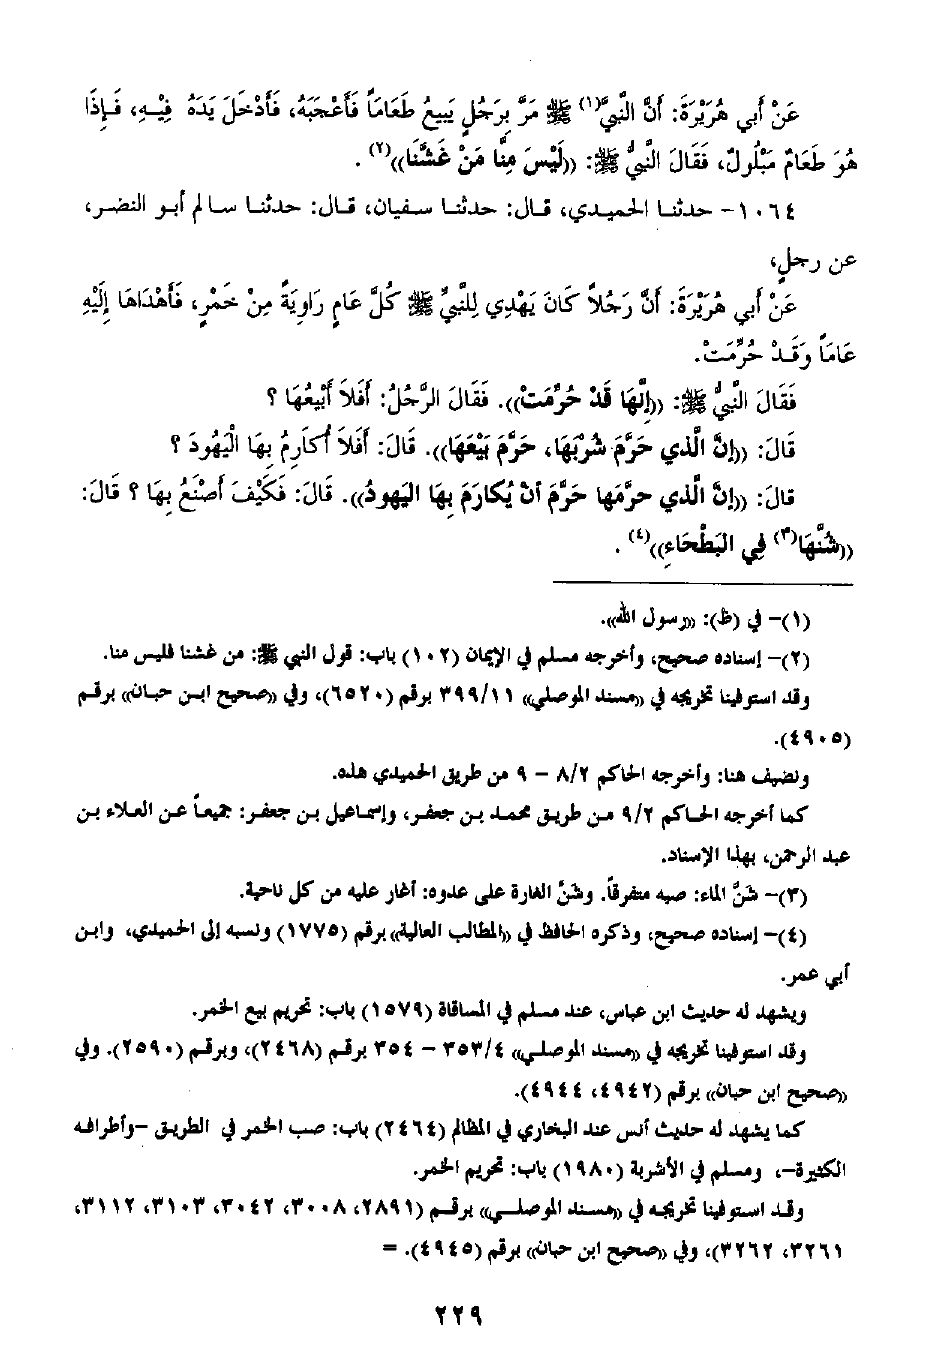 عَنْ أَبي هُرَيْرَةَ: أَنَّ النَّبِيَّ(١) ﷺ مَرَّ بِرَجُلٍ يَبِيعُ طَعَامَاً فَأَعْجَبَهُ، فَأَدْخَلَ يَدَهُ فِيْهِ، فَإِذَا
هُوَ طَعَامٌ مَبْلُولٌ، فَقَالَ النَّبِيُّ ﷺ: ((لَيْسَ مِنَّا مَنْ غَشَّنَا))(٢).
١٠٦٤- حدثنا الحميدي، قال: حدثنا سفيان، قال: حدثنا سالم أبو النضر،
عن رجلٍ،
عَنْ أَبي هُرَيْرَةَ: أَنَّ رَجُلاً كَانَ يَهْدِي لِلنَّبِيِّ ﷺ كُلَّ عَامٍ رَاوِيَةً مِنْ خَمْرٍ، فَأَهْدَاهَا إِلَيْهِ
عَامَاً وَقَدْ حُرِّمَتْ.
فَقَالَ النَّبِيُّ ﷺ: ((إِنَّهَا قَدْ حُرِّمَتْ)). فَقَالَ الرَّجُلُ: أَفَلاَ أَبِيْعُهَا ؟
قَالَ: ((إِنَّ الَّذي حَرَّمَ شُرْبَهَا، حَرَّمَ بَيْعَهَا)). قَالَ: أَفَلاَ أُكَارِمُ بِهَا الْيَهُودَ ؟
قَالَ: ((إِنَّ الَّذي حرَّمَها حَرَّمَ أَنْ يُكَارَمَ بِهَا اليَهودُ)). قَالَ: فَكَيْفَ أَصْنَعُ بِهَا ؟ قَالَ:
((شُنَّهَا(٣) فِي البَطْحَاءِ))(٤).
(١)- في (ظ): ((رسول الله)).
(٢)- إسناده صحيح، وأخرجه مسلم في الإيمان (١٠٢) باب: قول النبي ﷺ: من غشنا فليس منا.
وقد استوفينا تخريجه في ((مسند الموصلي)) ٣٩٩/١١ برقم (٦٥٢٠)، وفي ((صحيح ابن حبان)) برقم
(٤٩٠٥).
ونضيف هنا: وأخرجه الحاكم ٨/٢ – ٩ من طريق الحميدي هذه.
كما أخرجه الحاكم ٩/٢ من طريق محمد بن جعفر، وإسماعيل بن جعفر: جميعاً عن العلاء بن
عبد الرحمن، بهذا الإسناد.
(٣)- شنَّ الماء: صبه متفرقاً. وشنَّ الغارة على عدوه: أغار عليه من كل ناحية.
(٤)- إسناده صحيح، وذكره الحافظ في ((المطالب العالية)) برقم (١٧٧٥) ونسبه إلى الحميدي، وابن
أبي عمر.
ويشهد له حديث ابن عباس، عند مسلم في المساقاة (١٥٧٩) باب: تحريم بيع الخمر.
وقد استوفينا تخريجه في ((مسند الموصلي)) ٣٥٣/٤ – ٣٥٤ برقم (٢٤٦٨)، وبرقم (٢٥٩٠). وفي
((صحيح ابن حبان)) برقم (٤٩٤٢، ٤٩٤٤).
كما يشهد له حديث أنس عند البخاري في المظالم (٢٤٦٤) باب: صب الخمر في الطريق -وأطرافه
الكثيرة-، ومسلم في الأشربة (١٩٨٠) باب: تحريم الخمر.
وقد استوفينا تخريجه في ((مسند الموصلي)) برقم (٢٨٩١، ٣٠٠٨، ٣٠٤٢، ٣١٠٣، ٣١١٢،
٣٢٦١، ٣٢٦٢)، وفي ((صحيح ابن حبان)) برقم (٤٩٤٥). =
٢٢٩